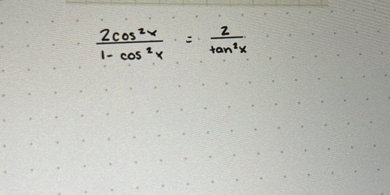 2cos²x / 1 - cos²x = 2 / tan²x